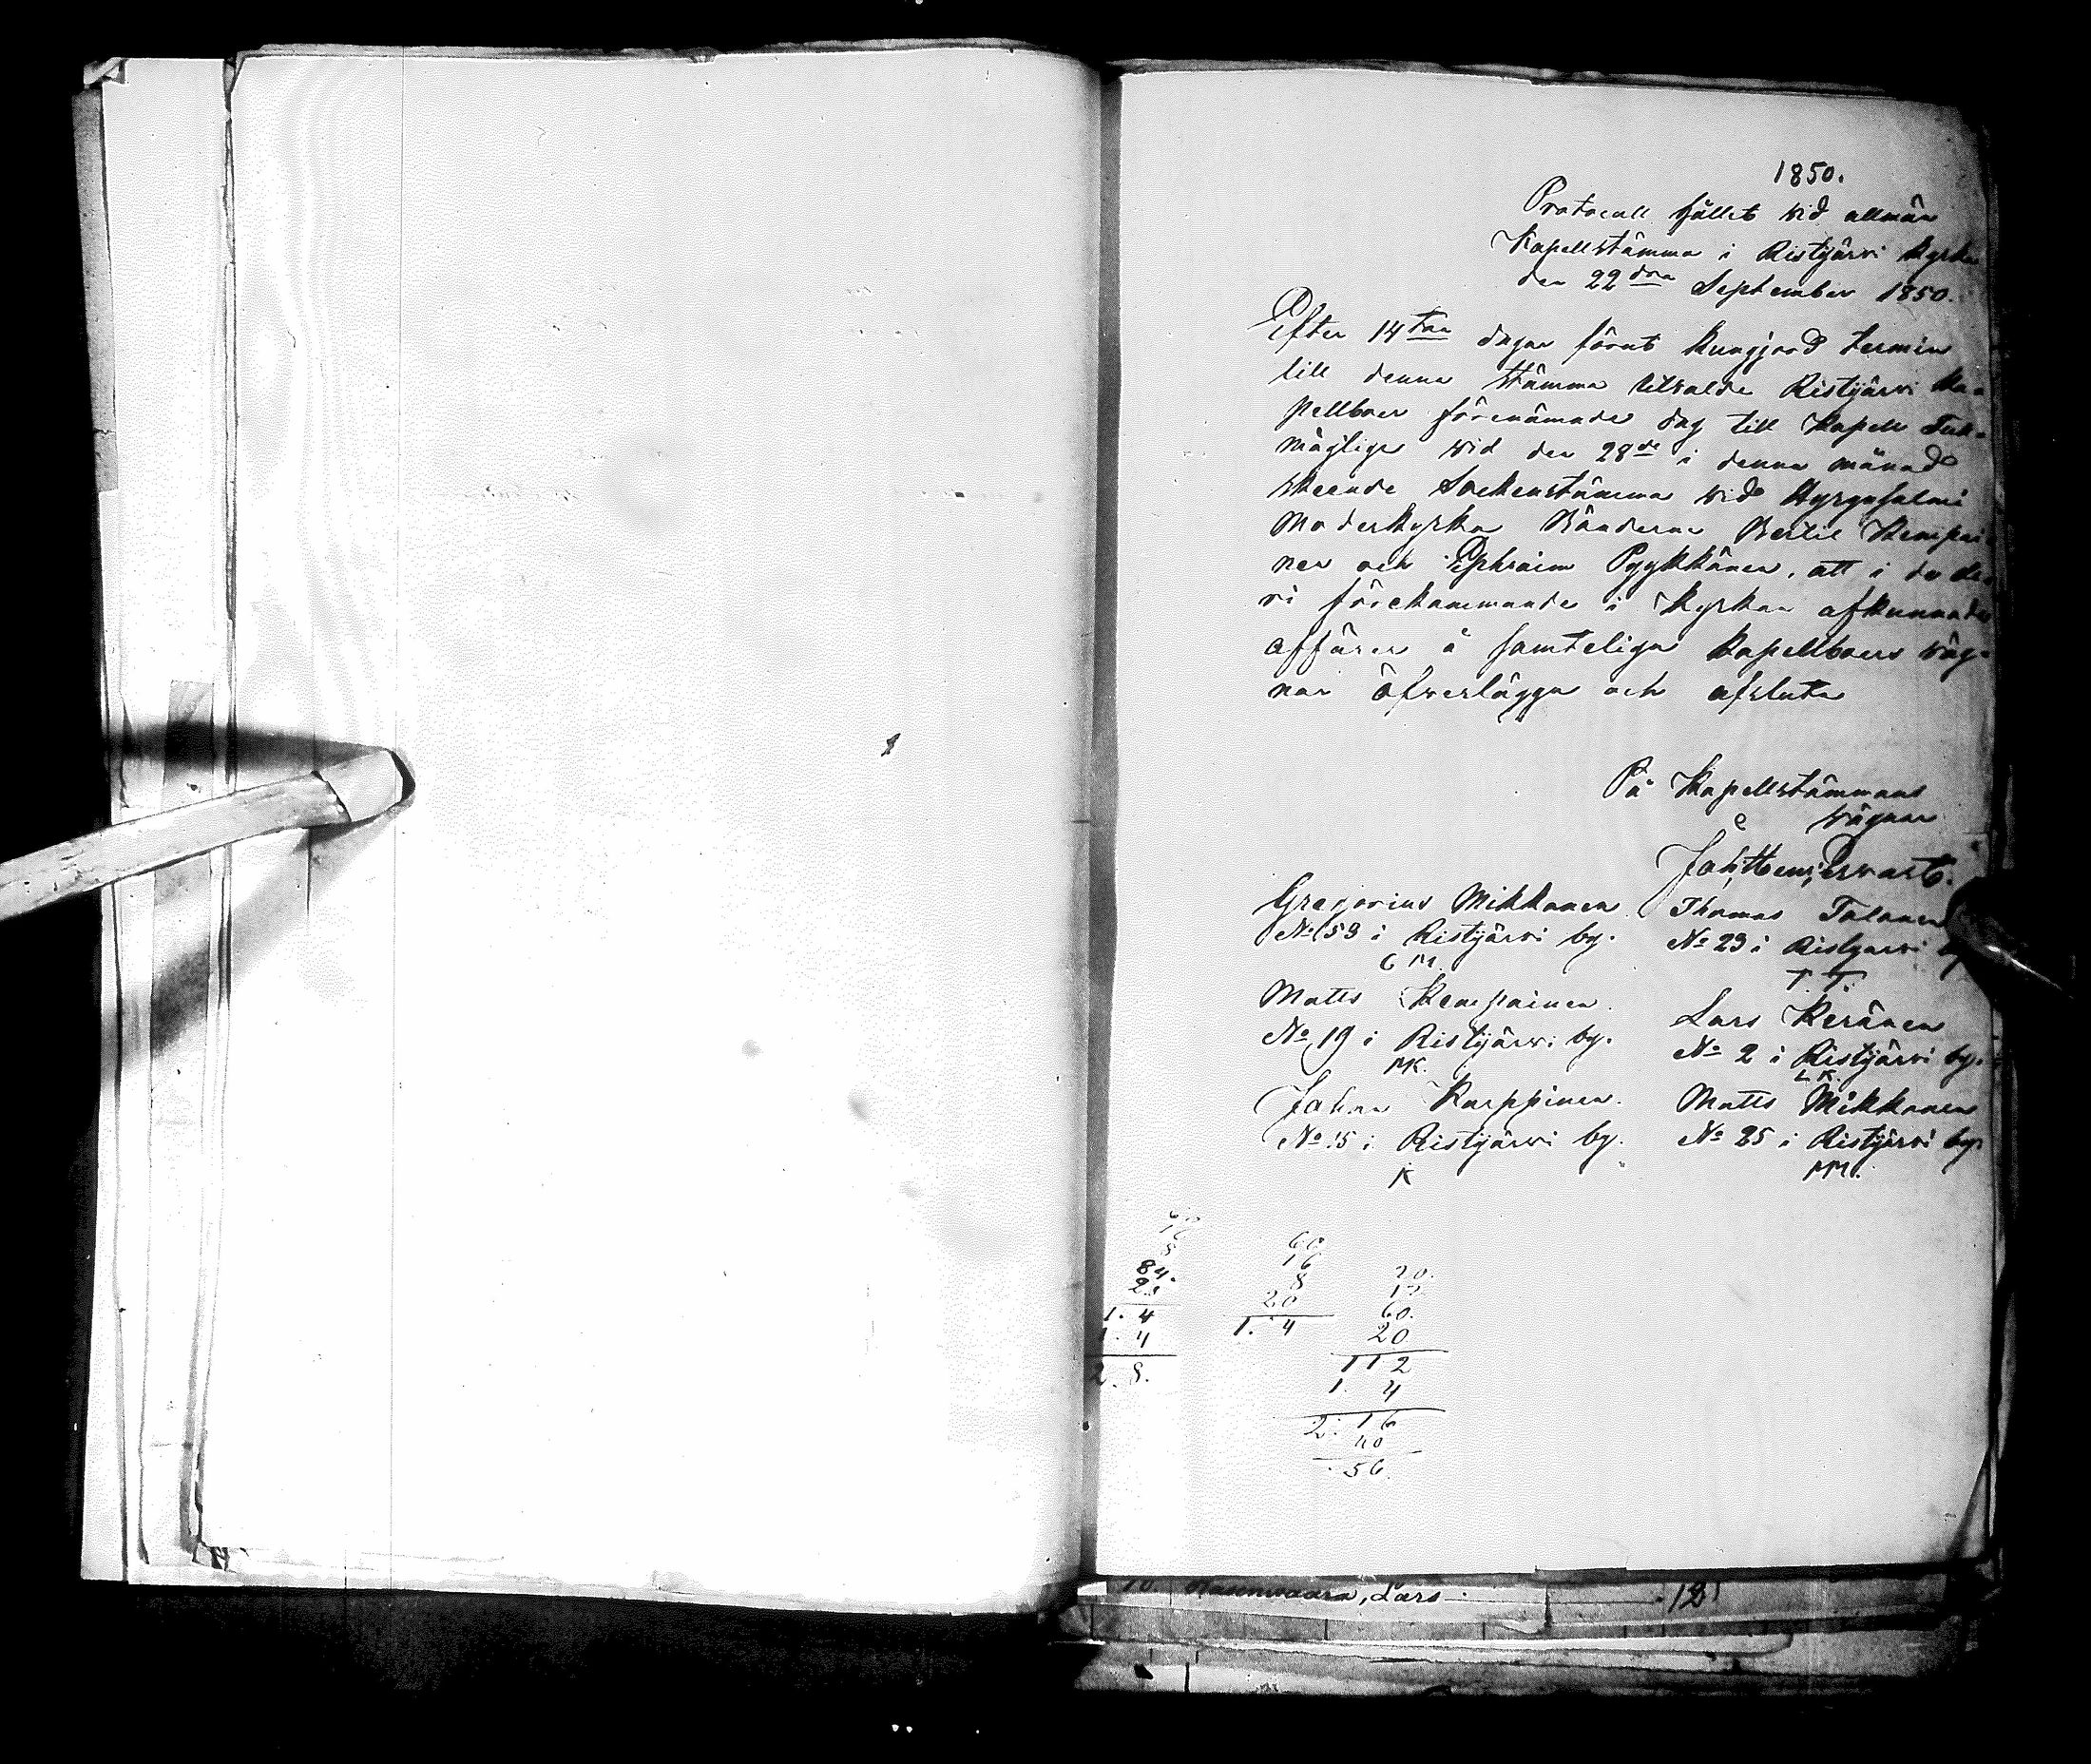 1850.
Protocall hållet wid allmän
Kapellstämma i Ristijärwi Kyrka
den 22dra September 1850.
Efter 14tan dagar förut kungjord termin
till denna stämma utwalde Ristijärwi Ka-
pellboer förenämnde dag till Kapell Full-
mägtige wid den 28de i denna månad
skeende Sockenstämma wid Hyrynsalmi
Moderkyrka Bönderne Bertil Kempai-
nen och Ephraim Pyykkönen, att i de de-
ri förekommande i Kyrkan afkunnade
affärer å samteliga Kapellboers wäg-
nar öfwerlägga och afsluta
På Kapellstämmans
wägnar
Joh. Henr.
Gregorius Mikkonen
No 53 i Ristijärwi by.
G M.
Thomas Tolonen
No 23 i Ristijärwi by
T. T.
Matts Kempainen
No 19 i Ristijärwi by.
MK.
Lars Keränen
No 2 i Ristijärwi by.
L K.
Johan Karppinen.
No 15 i Ristijärwi by.
K
Matts Mikkonen
No 25 i Ristijärwi by.
MM.
8
84.
1. 4
1. 4
2. 8.
60
16
8
20
1. 4
20.
12
60.
20
112
1. 4
2. 16
40
. 56.
Lars
181